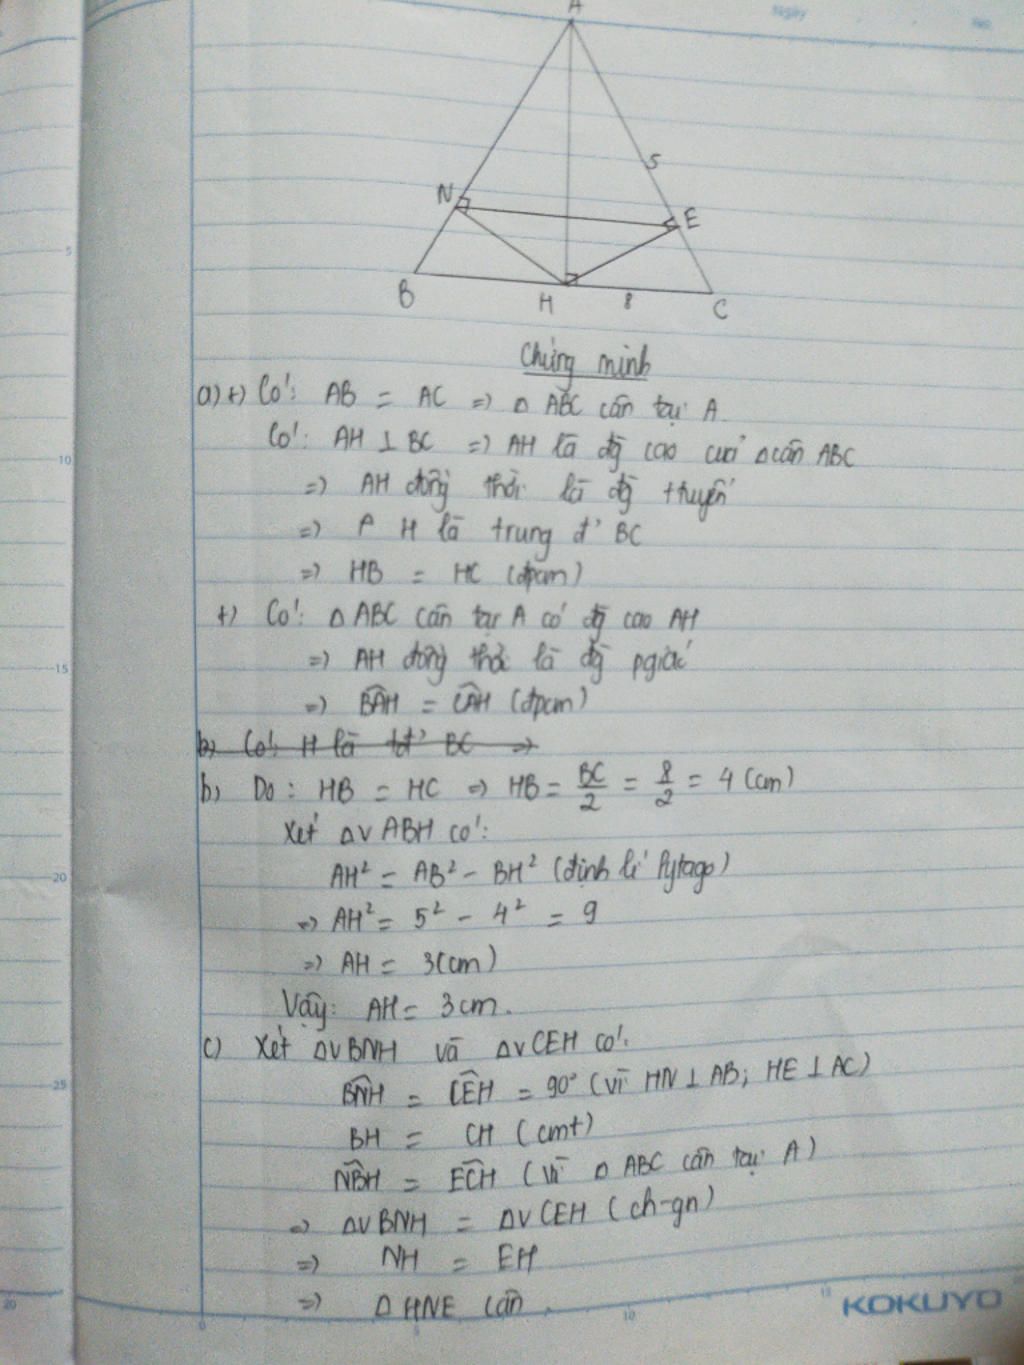 Ngày No.
A
5
N
E
B H 8 C
Chứng minh
a) +) Có: AB = AC => Δ ABC cân tại A.
Có: AH ⊥ BC => AH là đg̀ cao của Δ cân ABC
=> AH đồng thời là đg̀ tuyến
=> H là trung đ' BC
=> HB = HC (đpcm)
+) Có: Δ ABC cân tại A có đg̀ cao AH
=> AH đồng thời là đg̀ pgiác
=> B̂AH = ĈAH (đpcm)
b) Có: H là tđ' BC =>
b) Do: HB = HC => HB = BC/2 = 8/2 = 4 (cm)
Xét Δv ABH có:
AH² = AB² - BH² (định lí Pytago)
=> AH² = 5² - 4² = 9
=> AH = 3(cm)
Vậy: AH = 3cm.
c) Xét ΔvBNH và ΔvCEH có:
B̂NH = ĈEH = 90° (vì HN ⊥ AB; HE ⊥ AC)
BH = CH (cmt)
N̂BH = ÊCH (vì Δ ABC cân tại A)
=> ΔvBNH = ΔvCEH (ch-gn)
=> NH = EH
=> Δ HNE cân
5
10
15
20
25
20 0 5 10 15
KOKUYO